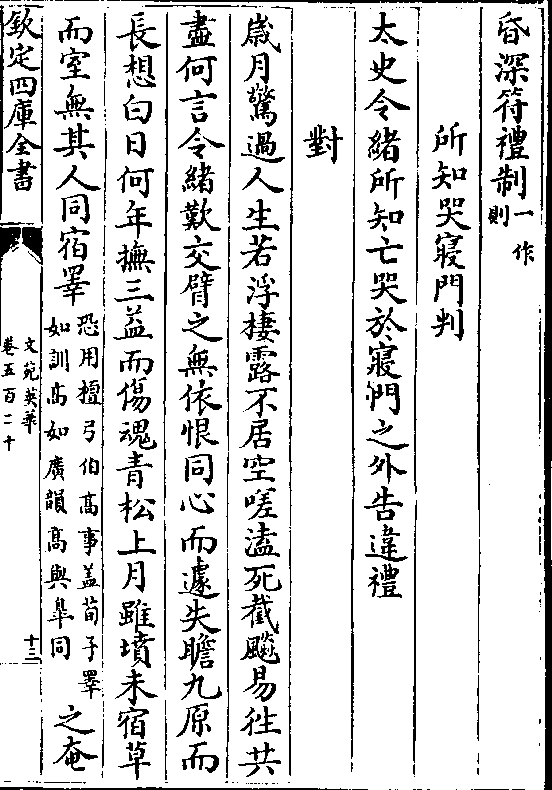 昏深符禮制一作則
所知哭寢門判
太史令緒所知亡哭於寢門之外告違禮
對
歲月驚過人生若浮棲露不居空嗟溘死截飈易徃共
盡何言令緒歎交臂之無依恨同心而遽失瞻九原而
長想白日何年撫三益而傷魂青松上月雖墳未宿草
而室無其人同宿睪恐用檀弓伯髙事盖荀子睪如訓髙如廣韻髙與臯同之奄
欽定四庫全書
文苑英華
卷五百二十
十三